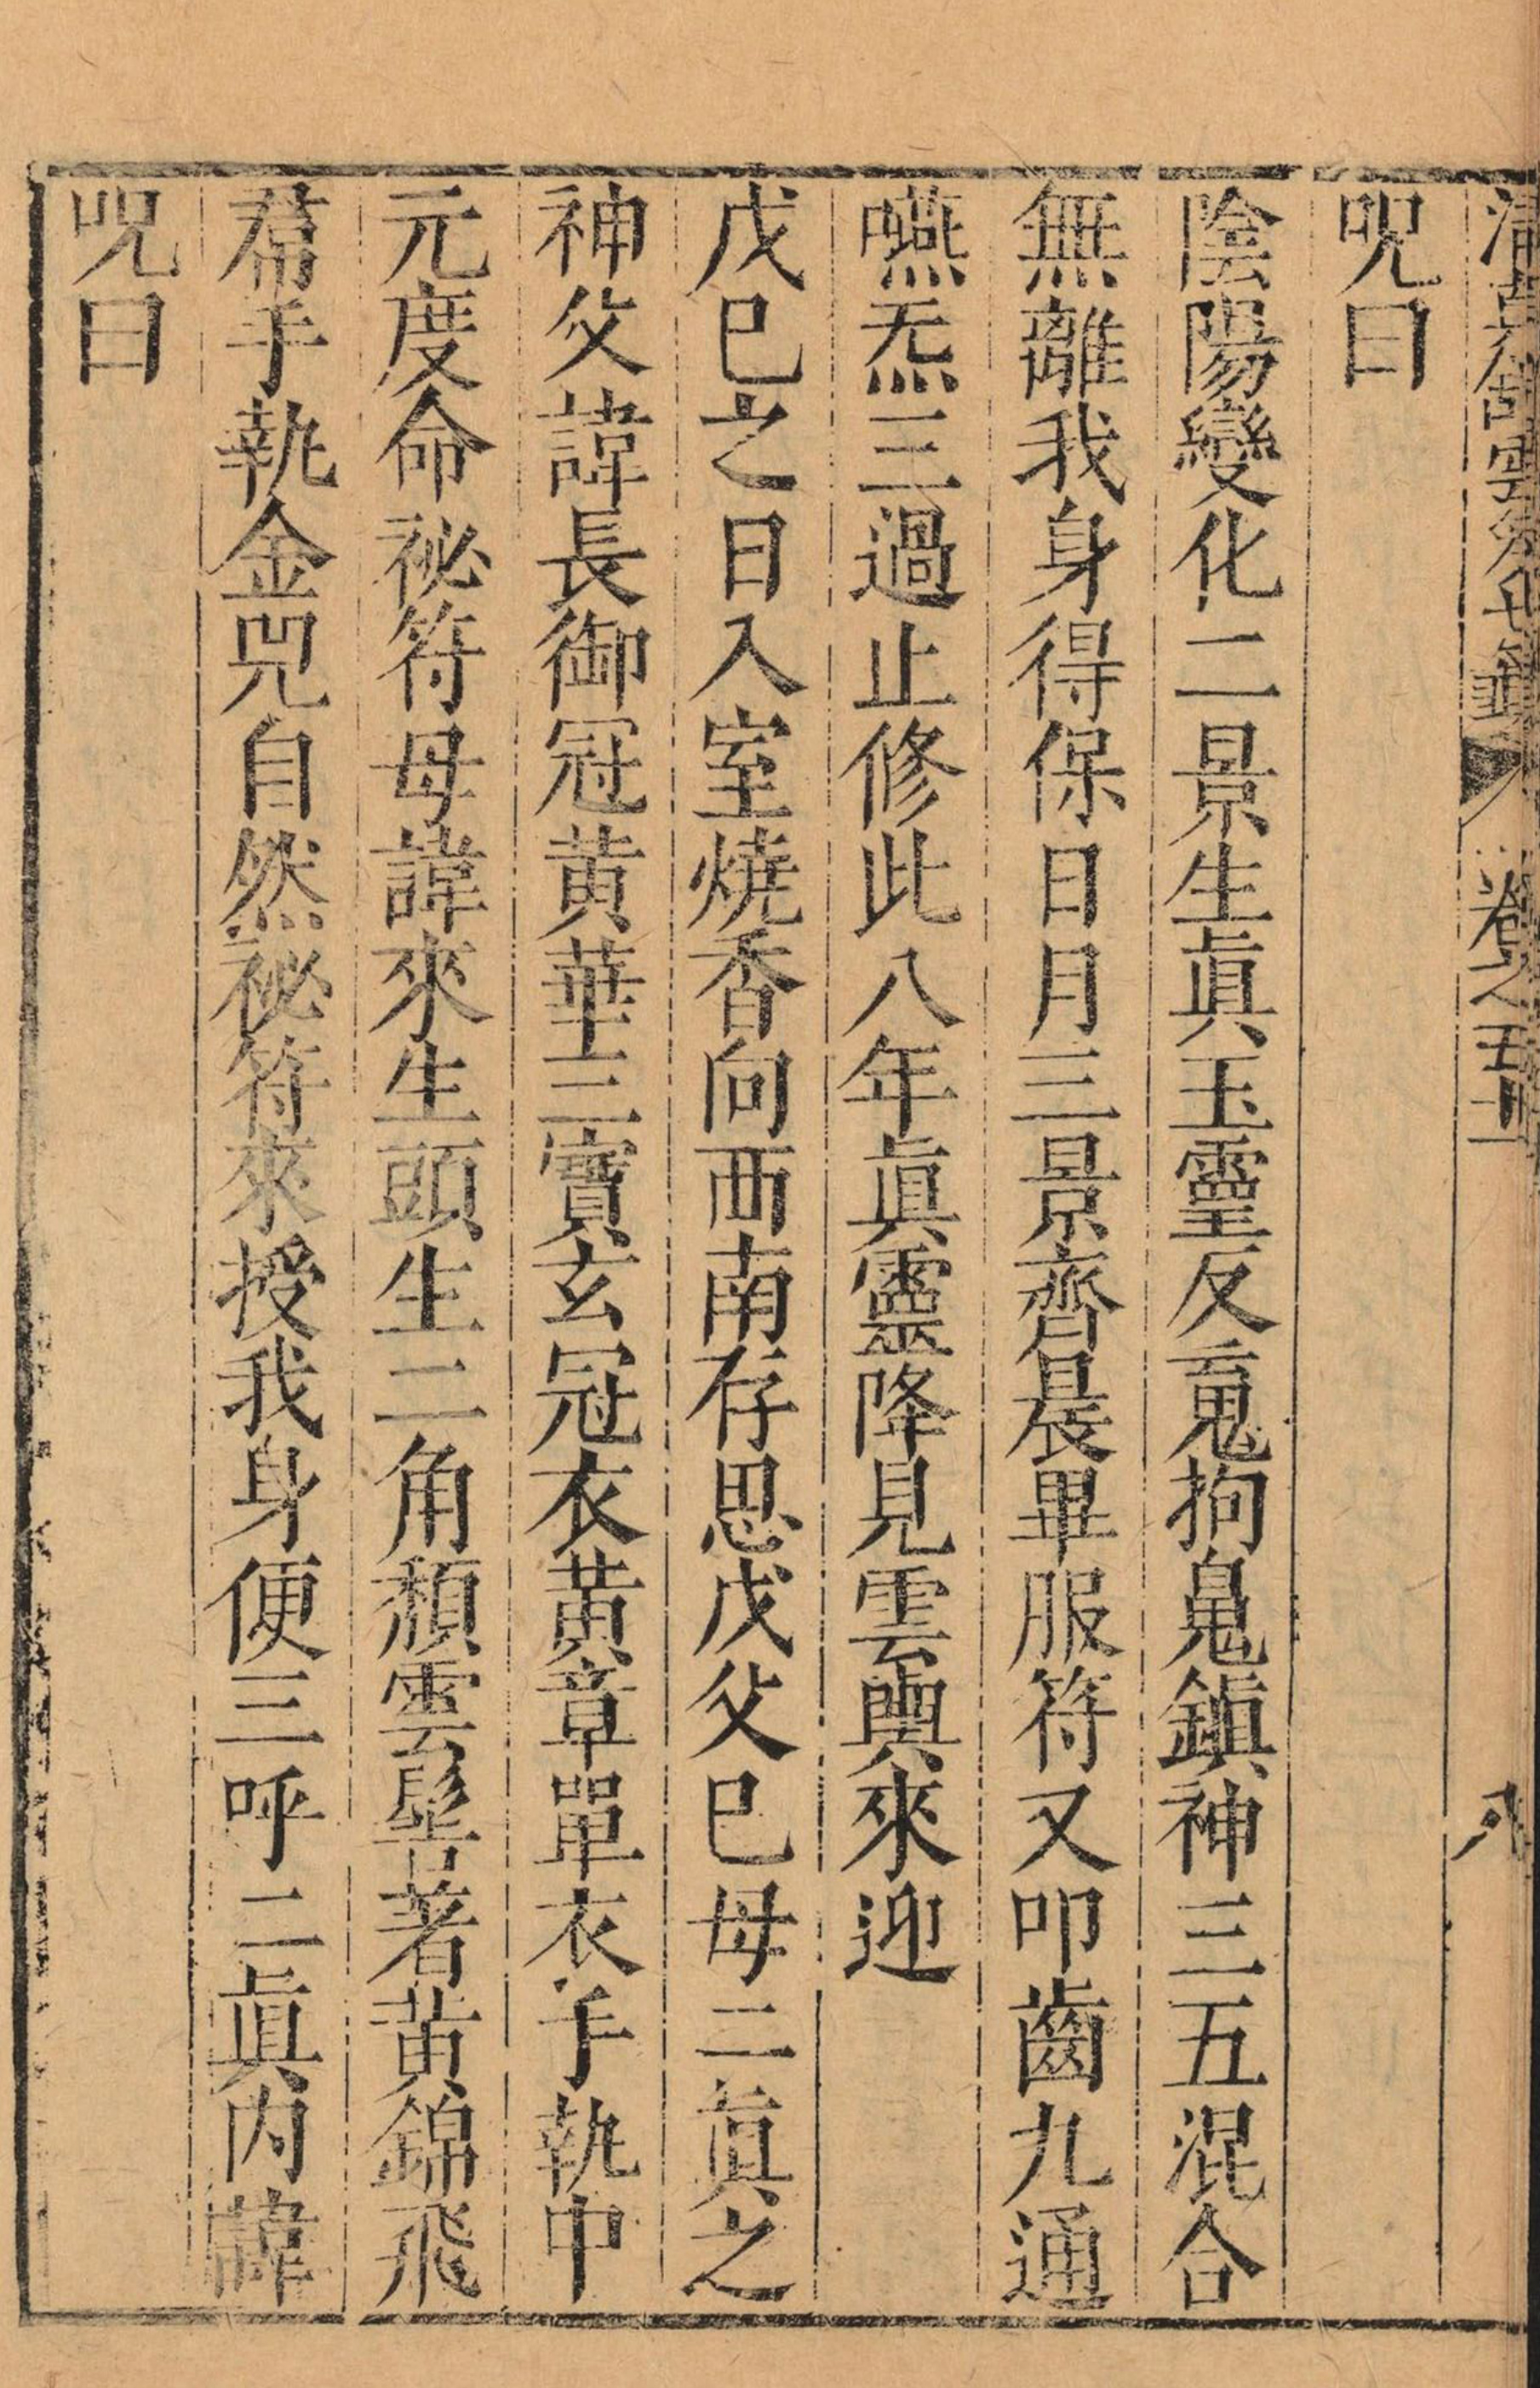 清真館雲笈七籤 卷之五十二 八
呪曰
陰陽變化二景生眞玉靈反䰟拘鬽鎮神三五混合
無離我身得保日月三景齊晨畢服符又叩齒九通
嚥炁三過止修此八年眞靈降見雲輿來迎
戊巳之日入室燒香向西南存思戊父巳母二眞之
神父諱長御冠黄華三寶玄冠衣黃章單衣手執中
元度命祕符母諱來生頭生二角頽雲髻著黄錦飛
帬手執金兕自然祕符來授我身便三呼二眞内諱
呪曰